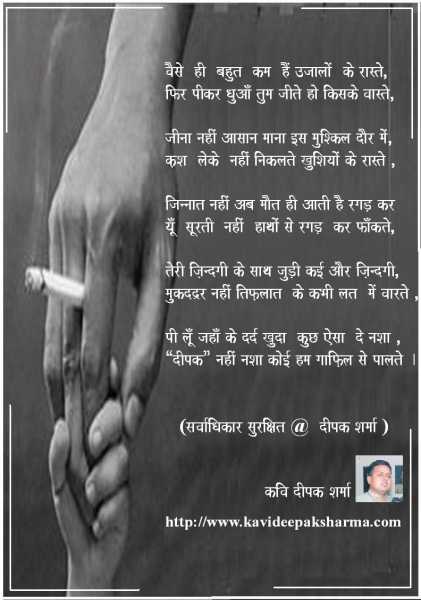 वैसे ही बहुत कम हैं उजालों के रास्ते,
फिर पीकर धुआँ तुम जीते हो किसके वास्ते,
जीना नहीं आसान माना इस मुश्किल दौर में,
कश लेके नहीं निकलते खुशियों के रास्ते ,
जिन्नात नहीं अब मौत ही आती है रगड़ कर
यूँ सूरती नहीं हाथों से रगड़ कर फाँकते,
तेरी ज़िन्दगी के साथ जुड़ी कई और ज़िन्दगी,
मुकद्दर नहीं तिफ़लात के कभी लत में वारते ,
पी लूँ जहाँ के दर्द खुदा कुछ ऐसा दे नशा ,
“दीपक” नहीं नशा कोई हम गाफ़िल से पालते ।
(सर्वाधिकार सुरक्षित @ दीपक शर्मा )
कवि दीपक शर्मा
http://www.kavideepaksharma.com